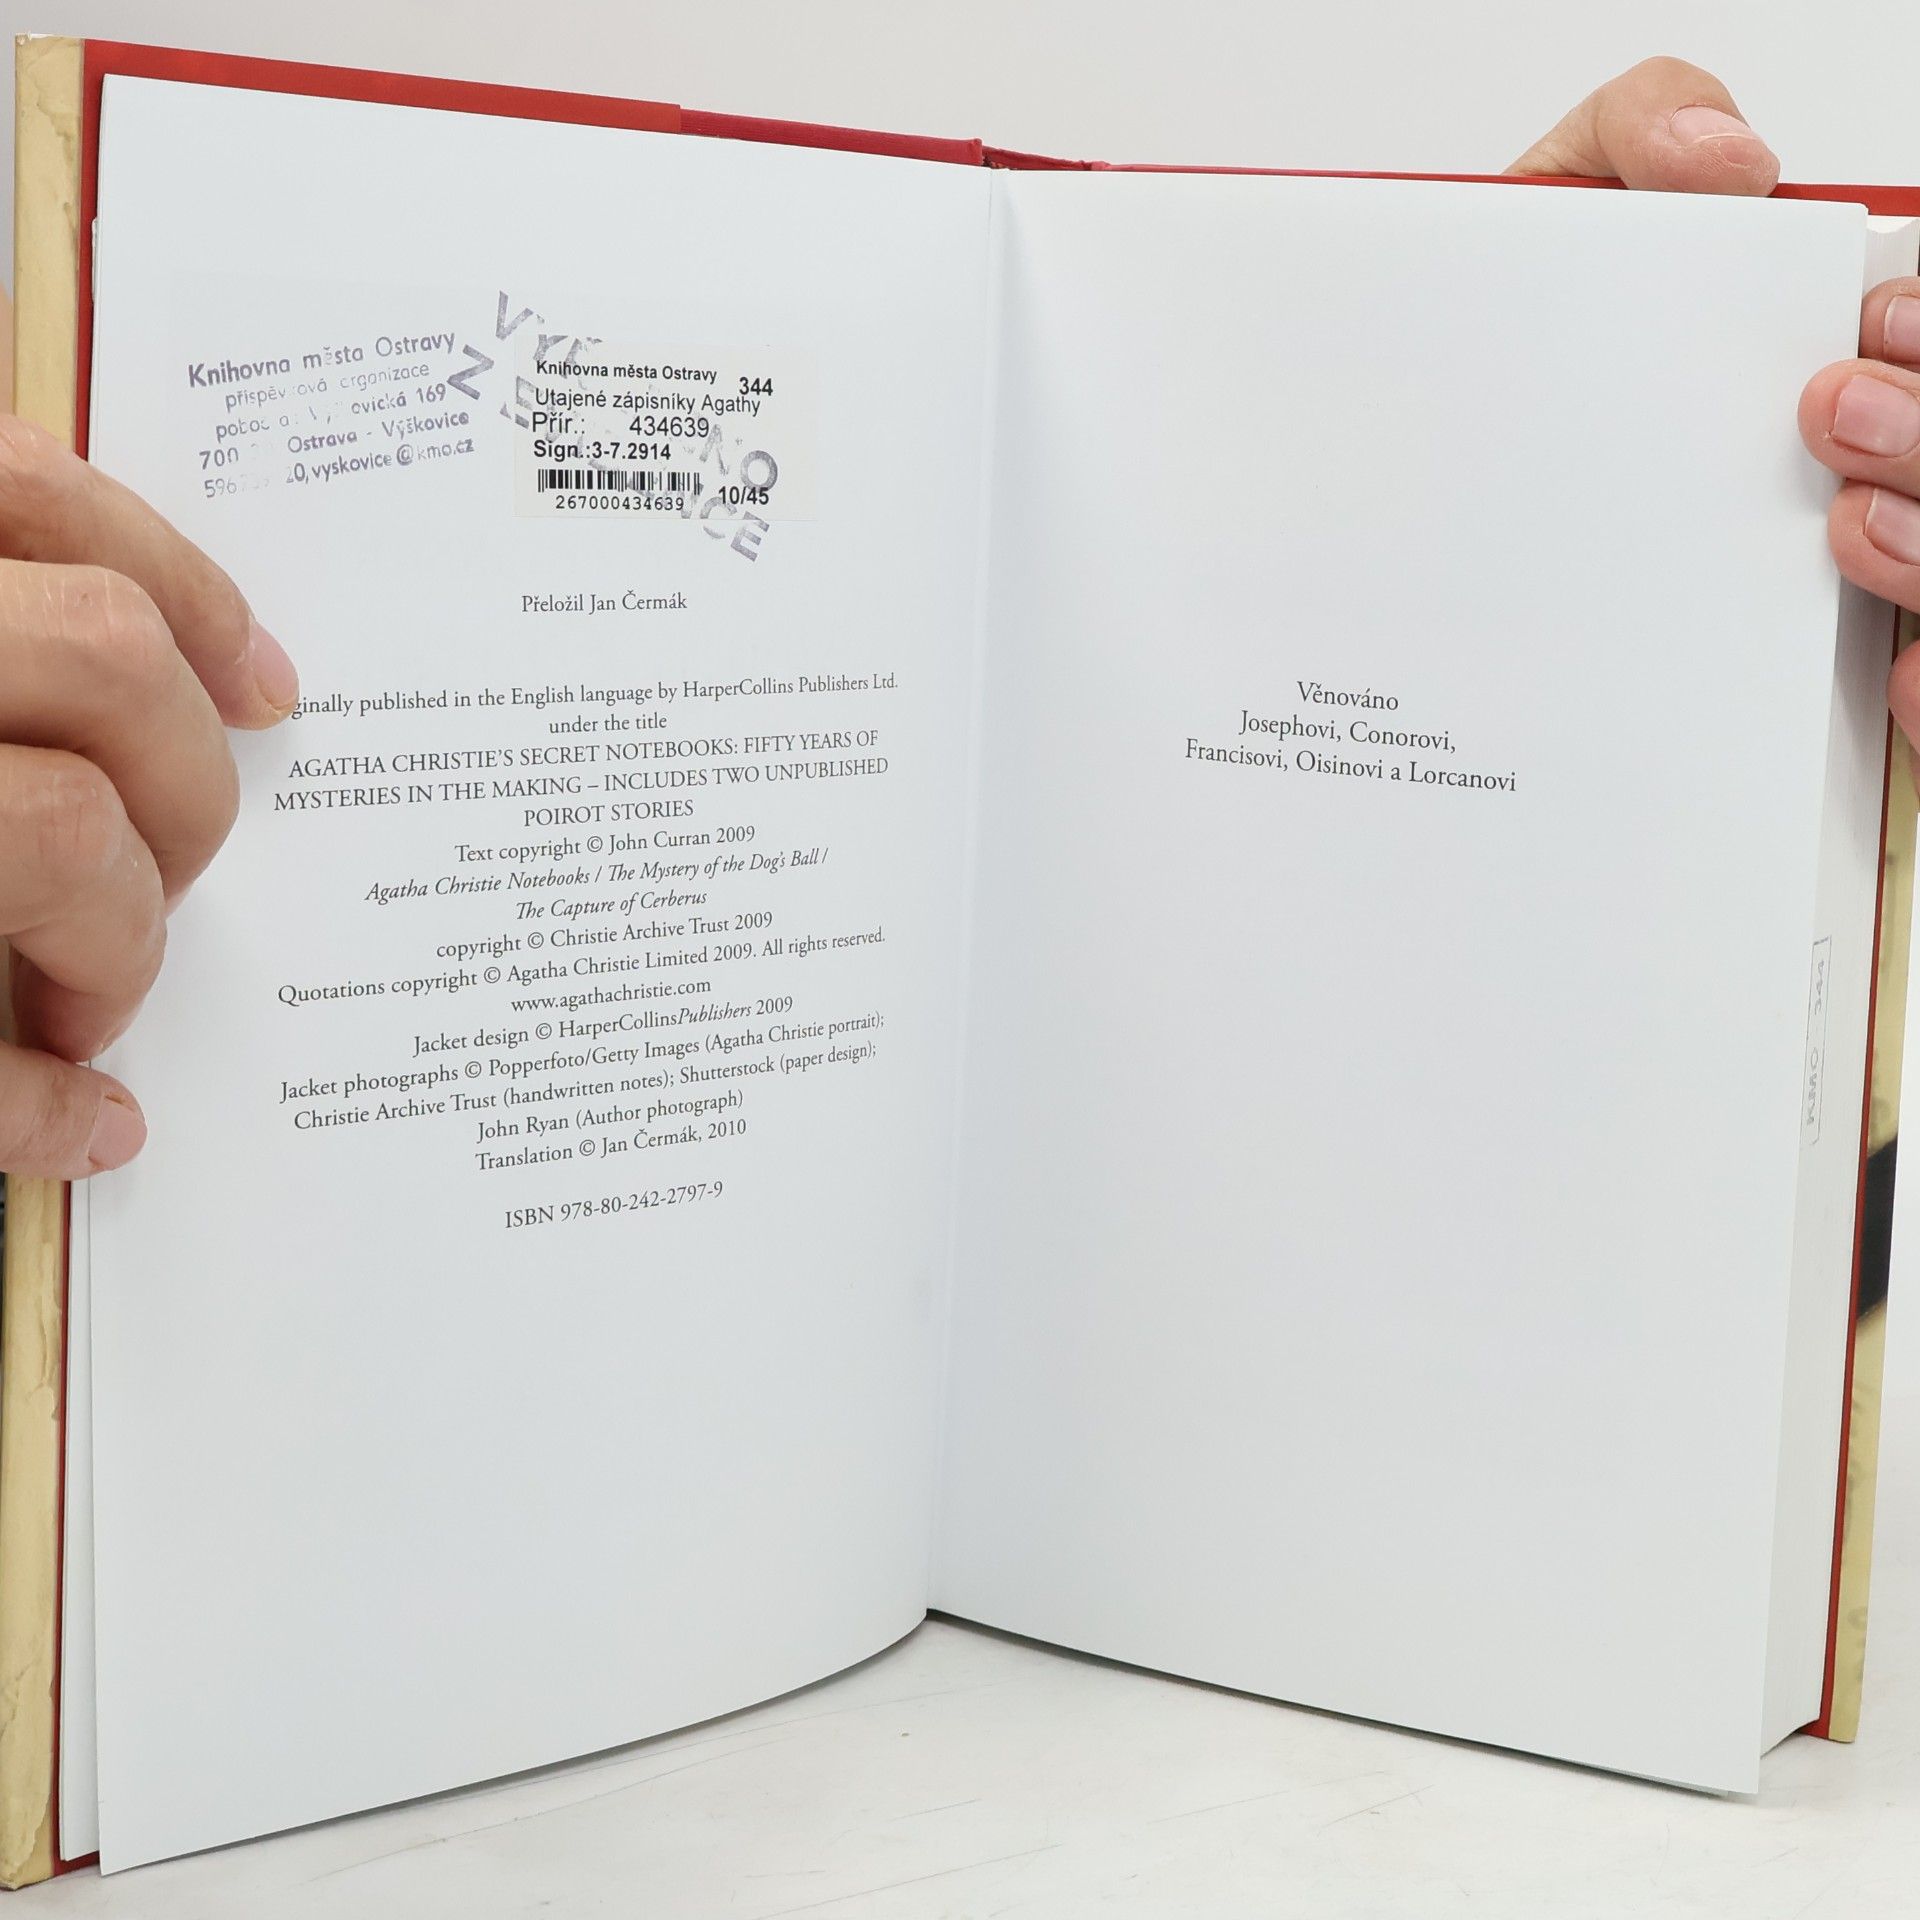 Knihovna města Ostravy
organizace
169
700 Ostrava - Výškovice
vyskovice@kmo.cz
Z
Knihovna města Ostravy 344
Utajené zápisníky Agathy
Přír.: 434639
Sign.:3-7.2914
10/45
267000434639
Přeložil Jan Čermák
ginally published in the English language by HarperCollins Publishers Ltd.
under the title
AGATHA CHRISTIE'S SECRET NOTEBOOKS: FIFTY YEARS OF
MYSTERIES IN THE MAKING – INCLUDES TWO UNPUBLISHED
POIROT STORIES
Text copyright © John Curran 2009
Agatha Christie Notebooks / The Mystery of the Dog's Ball /
The Capture of Cerberus
copyright © Christie Archive Trust 2009
Quotations copyright © Agatha Christie Limited 2009. All rights reserved.
www.agathachristie.com
Jacket design © HarperCollinsPublishers 2009
Jacket photographs © Popperfoto/Getty Images (Agatha Christie portrait);
Christie Archive Trust (handwritten notes); Shutterstock (paper design);
John Ryan (Author photograph)
Translation © Jan Čermák, 2010
ISBN 978-80-242-2797-9
Věnováno
Josephovi, Conorovi,
Francisovi, Oisinovi a Lorcanovi
KMO 344